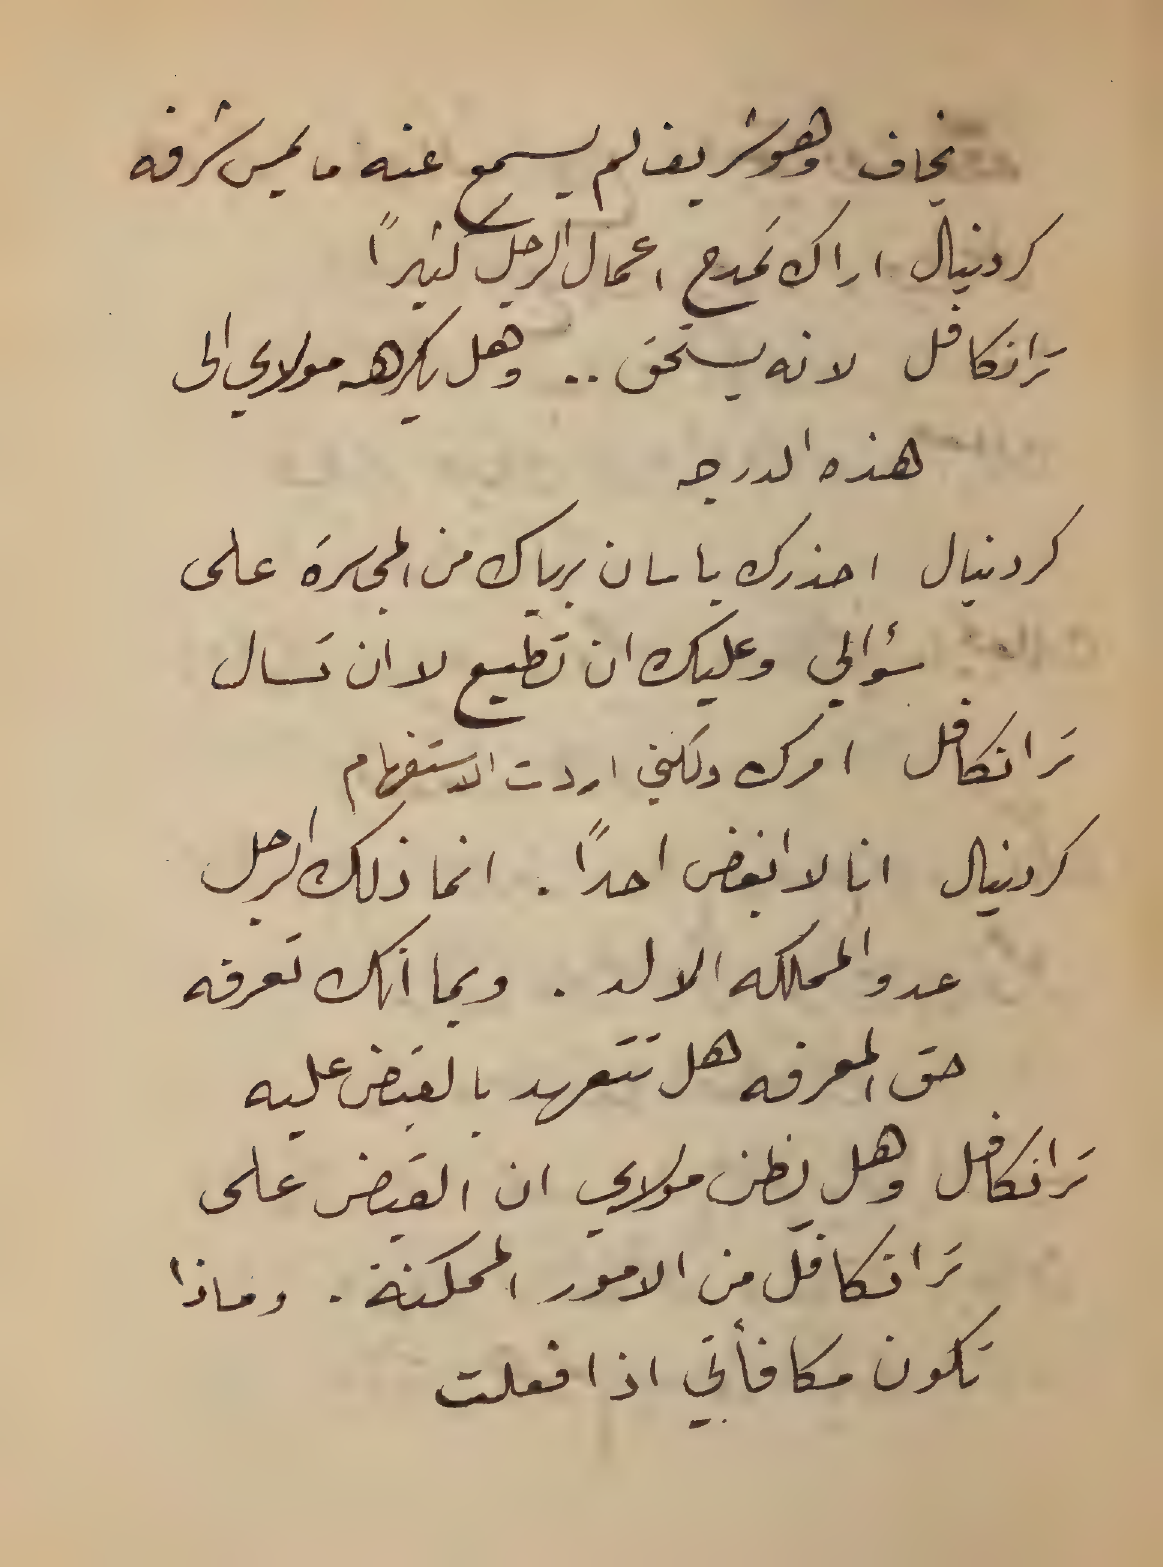 يخاف وهو شريف لم يسمع عنه ما يمس شرفه
كردنيال اراك تمدح اعمال الرجل كثيرًا
ترانكافل لانه يستحق .. وهل يكرهه مولاي الى
هذه الدرجه
كردنيال احذرك يا سان برياك من المجاسرة على
سؤالي وعليك ان تطيع لا ان تسال
ترانكافل امرك ولكني اردت الاستفهام
كردنيال انا لا ابغض احدًا . انما ذلك الرجل
عدو المملكه الالد . وبما انك تعرفه
حق المعرفه هل تتعهد بالقبض عليه
ترانكافل وهل يظن مولاي ان القبض على
ترانكافل من الامور الممكنة . وماذا
تكون مكافأتي اذا فعلت